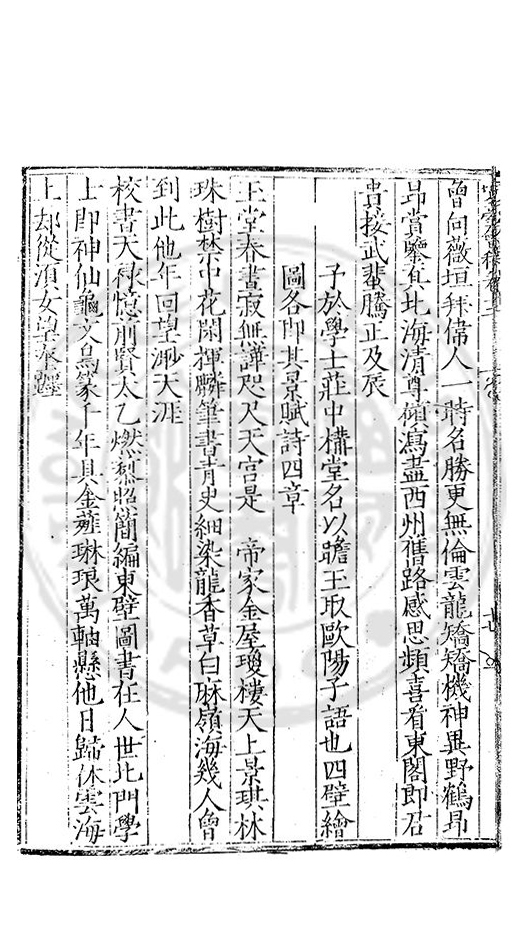 曾向薇垣拜偉人一時名勝更無倫雲龍矯矯機神異野鶴昂
昂賞鑒真北海清尊傾瀉盡西州舊路感思頻喜看東閣即召
貴接武蜚騰正及辰
予於學士莊中構堂名以瞻玉取歐陽子語也四壁繪
圖各即其景賦詩四章
玉堂春晝寂無譁咫尺天宮是帝家金屋瓊樓天上景琪林
珠樹禁中花閑揮麟筆書青史細染龍香草白麻嶺海幾人曾
到此他年回望渺天涯
校書天祿憶前賢太乙燃藜照簡編東壁圖書在人世北門學
士即神仙龜文鳥篆千年具金薤琳琅萬軸懸他日歸休雲海
上却從須女望奎躔